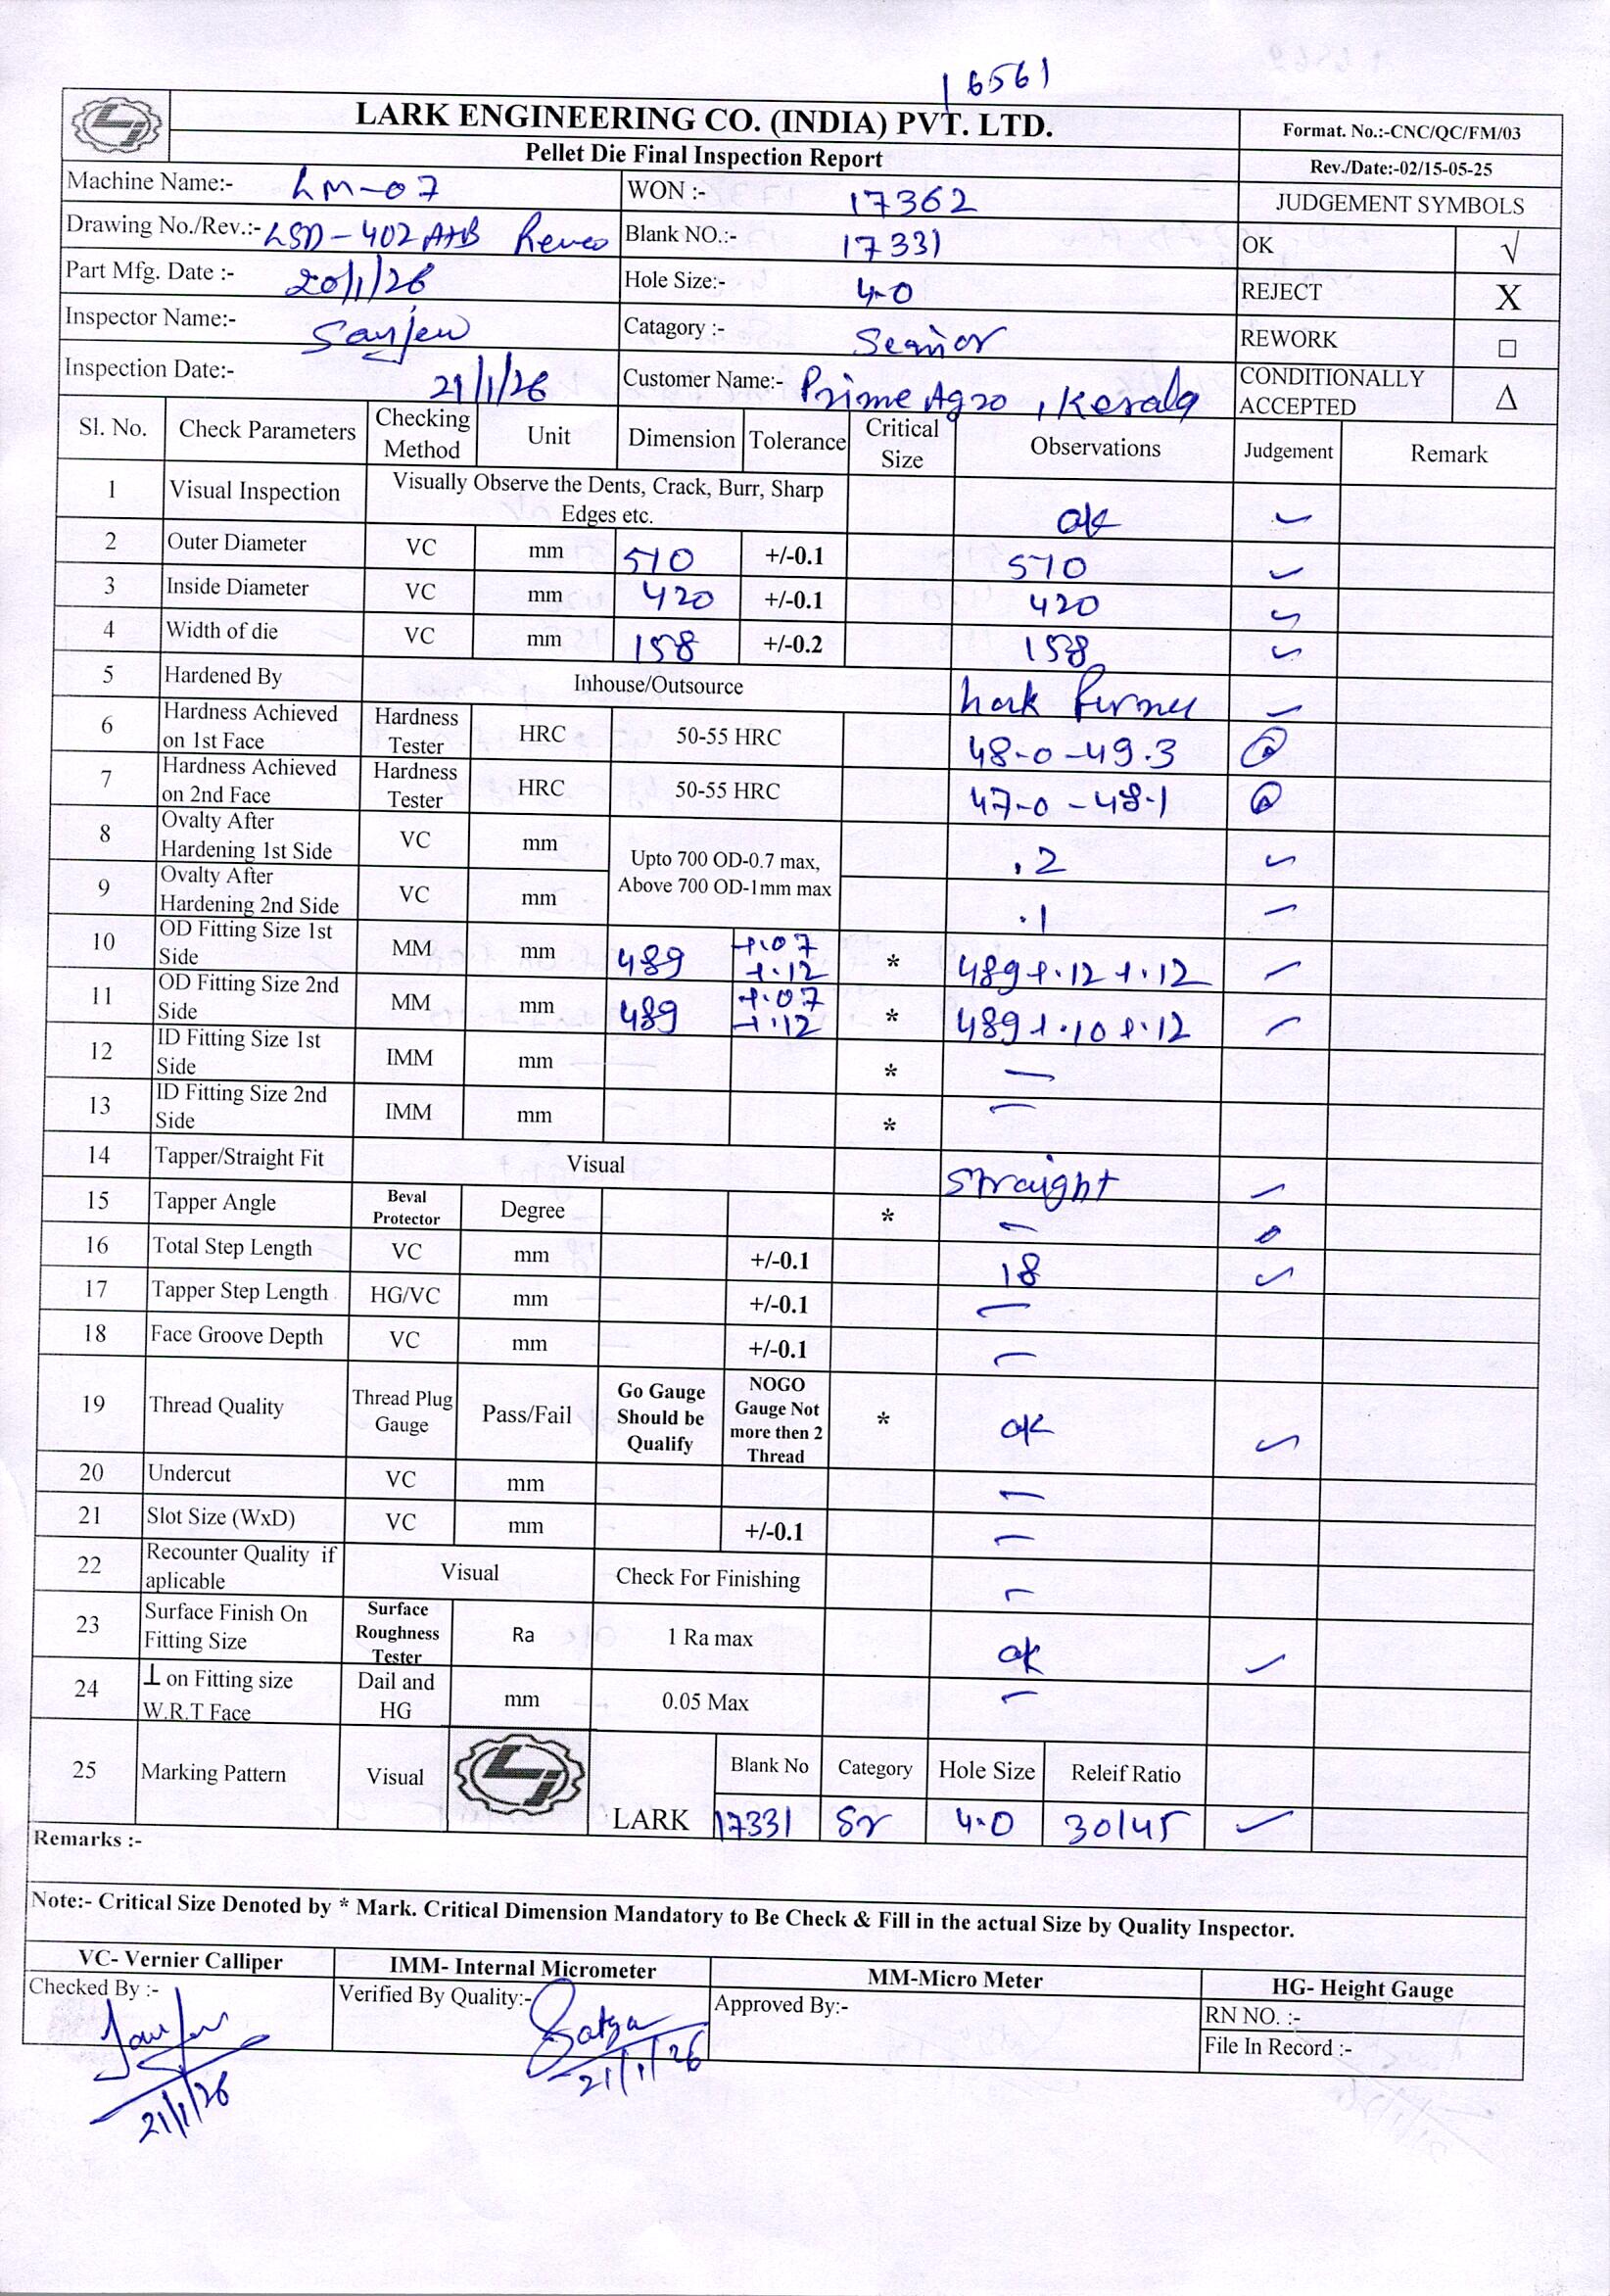 16561
LARK ENGINEERING CO. (INDIA) PVT. LTD.
Pellet Die Final Inspection Report
Format. No.:-CNC/QC/FM/03
Rev./Date:-02/15-05-25
Machine Name:- LM-07 WON :- 17362 JUDGEMENT SYMBOLS
Drawing No./Rev.:- LSD-402 Blank NO.:- 17331 OK √
Part Mfg. Date :- 20/1/26 Hole Size:- 4.0 REJECT X
Inspector Name:- Catagory :- Senior REWORK □
Inspection Date:- 21/1/26 Customer Name:- Prime Agro, Kerala CONDITIONALLY ACCEPTED Δ
Sl. No. Check Parameters Checking Method Unit Dimension Tolerance Critical Size Observations Judgement Remark
1 Visual Inspection Visually Observe the Dents, Crack, Burr, Sharp Edges etc. ok ✓
2 Outer Diameter VC mm 510 +/-0.1 510 ✓
3 Inside Diameter VC mm 420 +/-0.1 420 ✓
4 Width of die VC mm 158 +/-0.2 158 ✓
5 Hardened By Inhouse/Outsource Lark ✓
6 Hardness Achieved on 1st Face Hardness Tester HRC 50-55 HRC 48.0-49.3
7 Hardness Achieved on 2nd Face Hardness Tester HRC 50-55 HRC 47.0-48.1
8 Ovalty After Hardening 1st Side VC mm Upto 700 OD-0.7 max, Above 700 OD-1mm max .2 ✓
9 Ovalty After Hardening 2nd Side VC mm .1 ✓
10 OD Fitting Size 1st Side MM mm 489 +.07 +.12 * 489+.12+.12 ✓
11 OD Fitting Size 2nd Side MM mm 489 +.07 +.12 * 489+.10+.12 ✓
12 ID Fitting Size 1st Side IMM mm * —
13 ID Fitting Size 2nd Side IMM mm * —
14 Tapper/Straight Fit Visual Straight ✓
15 Tapper Angle Beval Protector Degree * —
16 Total Step Length VC mm +/-0.1 18 ✓
17 Tapper Step Length HG/VC mm +/-0.1 —
18 Face Groove Depth VC mm +/-0.1 —
19 Thread Quality Thread Plug Gauge Pass/Fail Go Gauge Should be Qualify NOGO Gauge Not more then 2 Thread * ok ✓
20 Undercut VC mm —
21 Slot Size (WxD) VC mm +/-0.1 —
22 Recounter Quality if aplicable Visual Check For Finishing —
23 Surface Finish On Fitting Size Surface Roughness Tester Ra 1 Ra max ok ✓
24 ⊥ on Fitting size W.R.T Face Dail and HG mm 0.05 Max —
25 Marking Pattern Visual LARK Blank No Category Hole Size Releif Ratio
17331 Sr 4.0 30/45 ✓
Remarks :-
Note:- Critical Size Denoted by * Mark. Critical Dimension Mandatory to Be Check & Fill in the actual Size by Quality Inspector.
VC- Vernier Calliper IMM- Internal Micrometer MM-Micro Meter HG- Height Gauge
Checked By :- Verified By Quality:- Satya Approved By:- RN NO. :-
File In Record :-
21/1/26 21/1/26